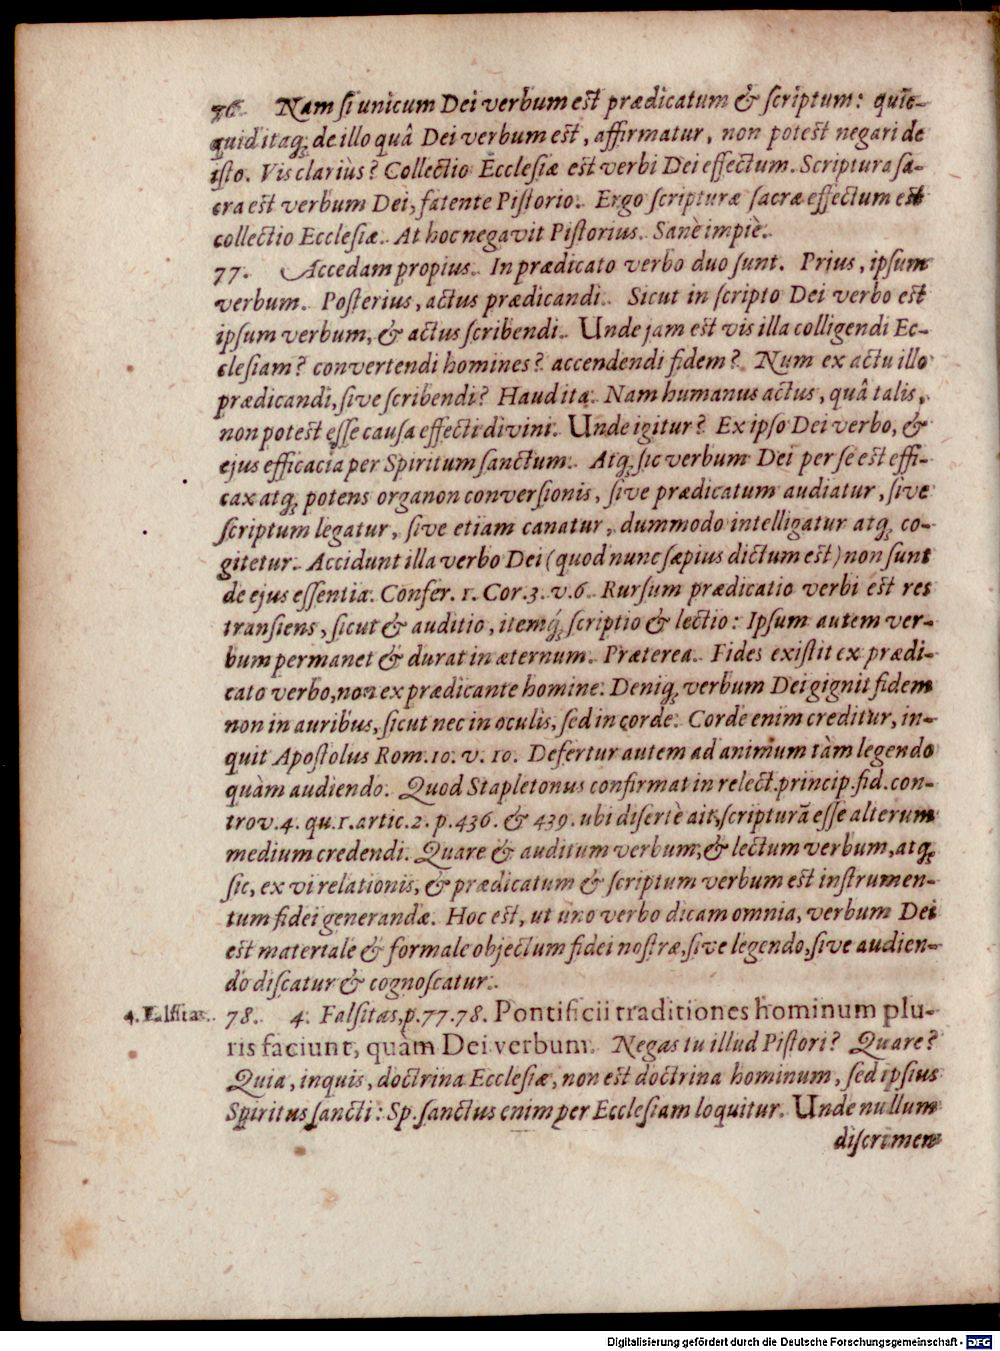 76. Nam si unicum Dei verbum est prædicatum & scriptum: quic-
quid itaq; de illo quâ Dei verbum est, affirmatur, non potest negari de
isto. Vis clariùs? Collectio Ecclesiæ est verbi Dei effectum. Scriptura sa-
cra est verbum Dei, fatente Pistorio. Ergo scripturæ sacræ effectum est
collectio Ecclesiæ. At hoc negavit Pistorius. Sanè impiè.
77. Accedam propius. In prædicato verbo duo sunt. Prius, ipsum
verbum. Posterius, actus prædicandi. Sicut in scripto Dei verbo est
ipsum verbum, & actus scribendi. Unde jam est vis illa colligendi Ec-
clesiam? convertendi homines? accendendi fidem? Num ex actu illo
prædicandi, sive scribendi? Haud ita. Nam humanus actus, quâ talis,
non potest esse causa effecti divini. Unde igitur? Ex ipso Dei verbo, &
ejus efficacia per Spiritum sanctum. Atq; sic verbum Dei per se est effi-
cax atq; potens organon conversionis, sive prædicatum audiatur, sive
scriptum legatur, sive etiam canatur, dummodo intelligatur atq; co-
gitetur. Accidunt illa verbo Dei (quod nunc sæpius dictum est) non sunt
de ejus essentia. Confer. 1. Cor. 3. v. 6. Rursum prædicatio verbi est res
transiens, sicut & auditio, itemq́; scriptio & lectio: Ipsum autem ver-
bum permanet & durat in æternum. Præterea. Fides existit ex prædi-
cato verbo, non ex prædicante homine. Deniq; verbum Dei gignit fidem
non in auribus, sicut nec in oculis, sed in corde. Corde enim creditur, in-
quit Apostolus Rom. 10. v. 10. Defertur autem ad animum tàm legendo
quàm audiendo. Quod Stapletonus confirmat in relect. princip. fid. con-
trov. 4. qu. 1. artic. 2. p. 436. & 439. ubi disertè ait, scripturā esse alterum
medium credendi. Quare & auditum verbum, & lectum verbum, atq;
sic, ex vi relationis, & prædicatum & scriptum verbum est instrumen-
tum fidei generandæ. Hoc est, ut uno verbo dicam omnia, verbum Dei
est materiale & formale objectum fidei nostræ, sive legendo, sive audien-
do discatur & cognoscatur.
4. Falsitas. 78. 4. Falsitas, p. 77. 78. Pontificii traditiones hominum plu-
ris faciunt, quàm Dei verbum. Negas tu illud Pistori? Quare?
Quia, inquis, doctrina Ecclesiæ, non est doctrina hominum, sed ipsius
Spiritus sancti: Sp. sanctus enim per Ecclesiam loquitur. Unde nullum
discrimen
Digitalisierung gefördert durch die Deutsche Forschungsgemeinschaft - DFG